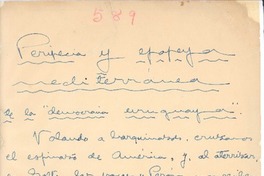 589
Peripecia y epopeya
mediterranea
de la "democracia uruguaya".
Volando a barquinazos, cruzamos
el espinazo de América, y, al aterrizar,